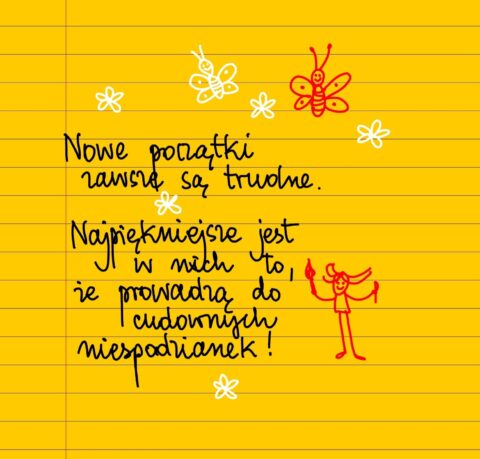 Nowe początki
zawsze są trudne.
Najpiękniejsze jest
w nich to,
że prowadzą do
cudownych
niespodzianek!